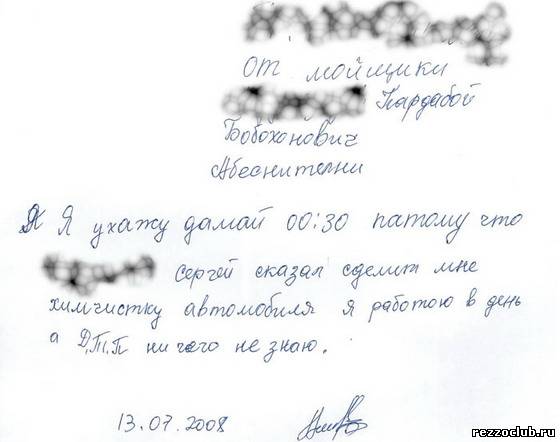 От мойщики
Кардабой
Бобохонович
Абеснителни
Я Я ухажу дамай 00:30 патому что
Сергей сказал сделит мне
химчистку автомобиля я работою в день
а Д.Т.П ни чего не знаю.
13.07.2008
rezzoclub.ru